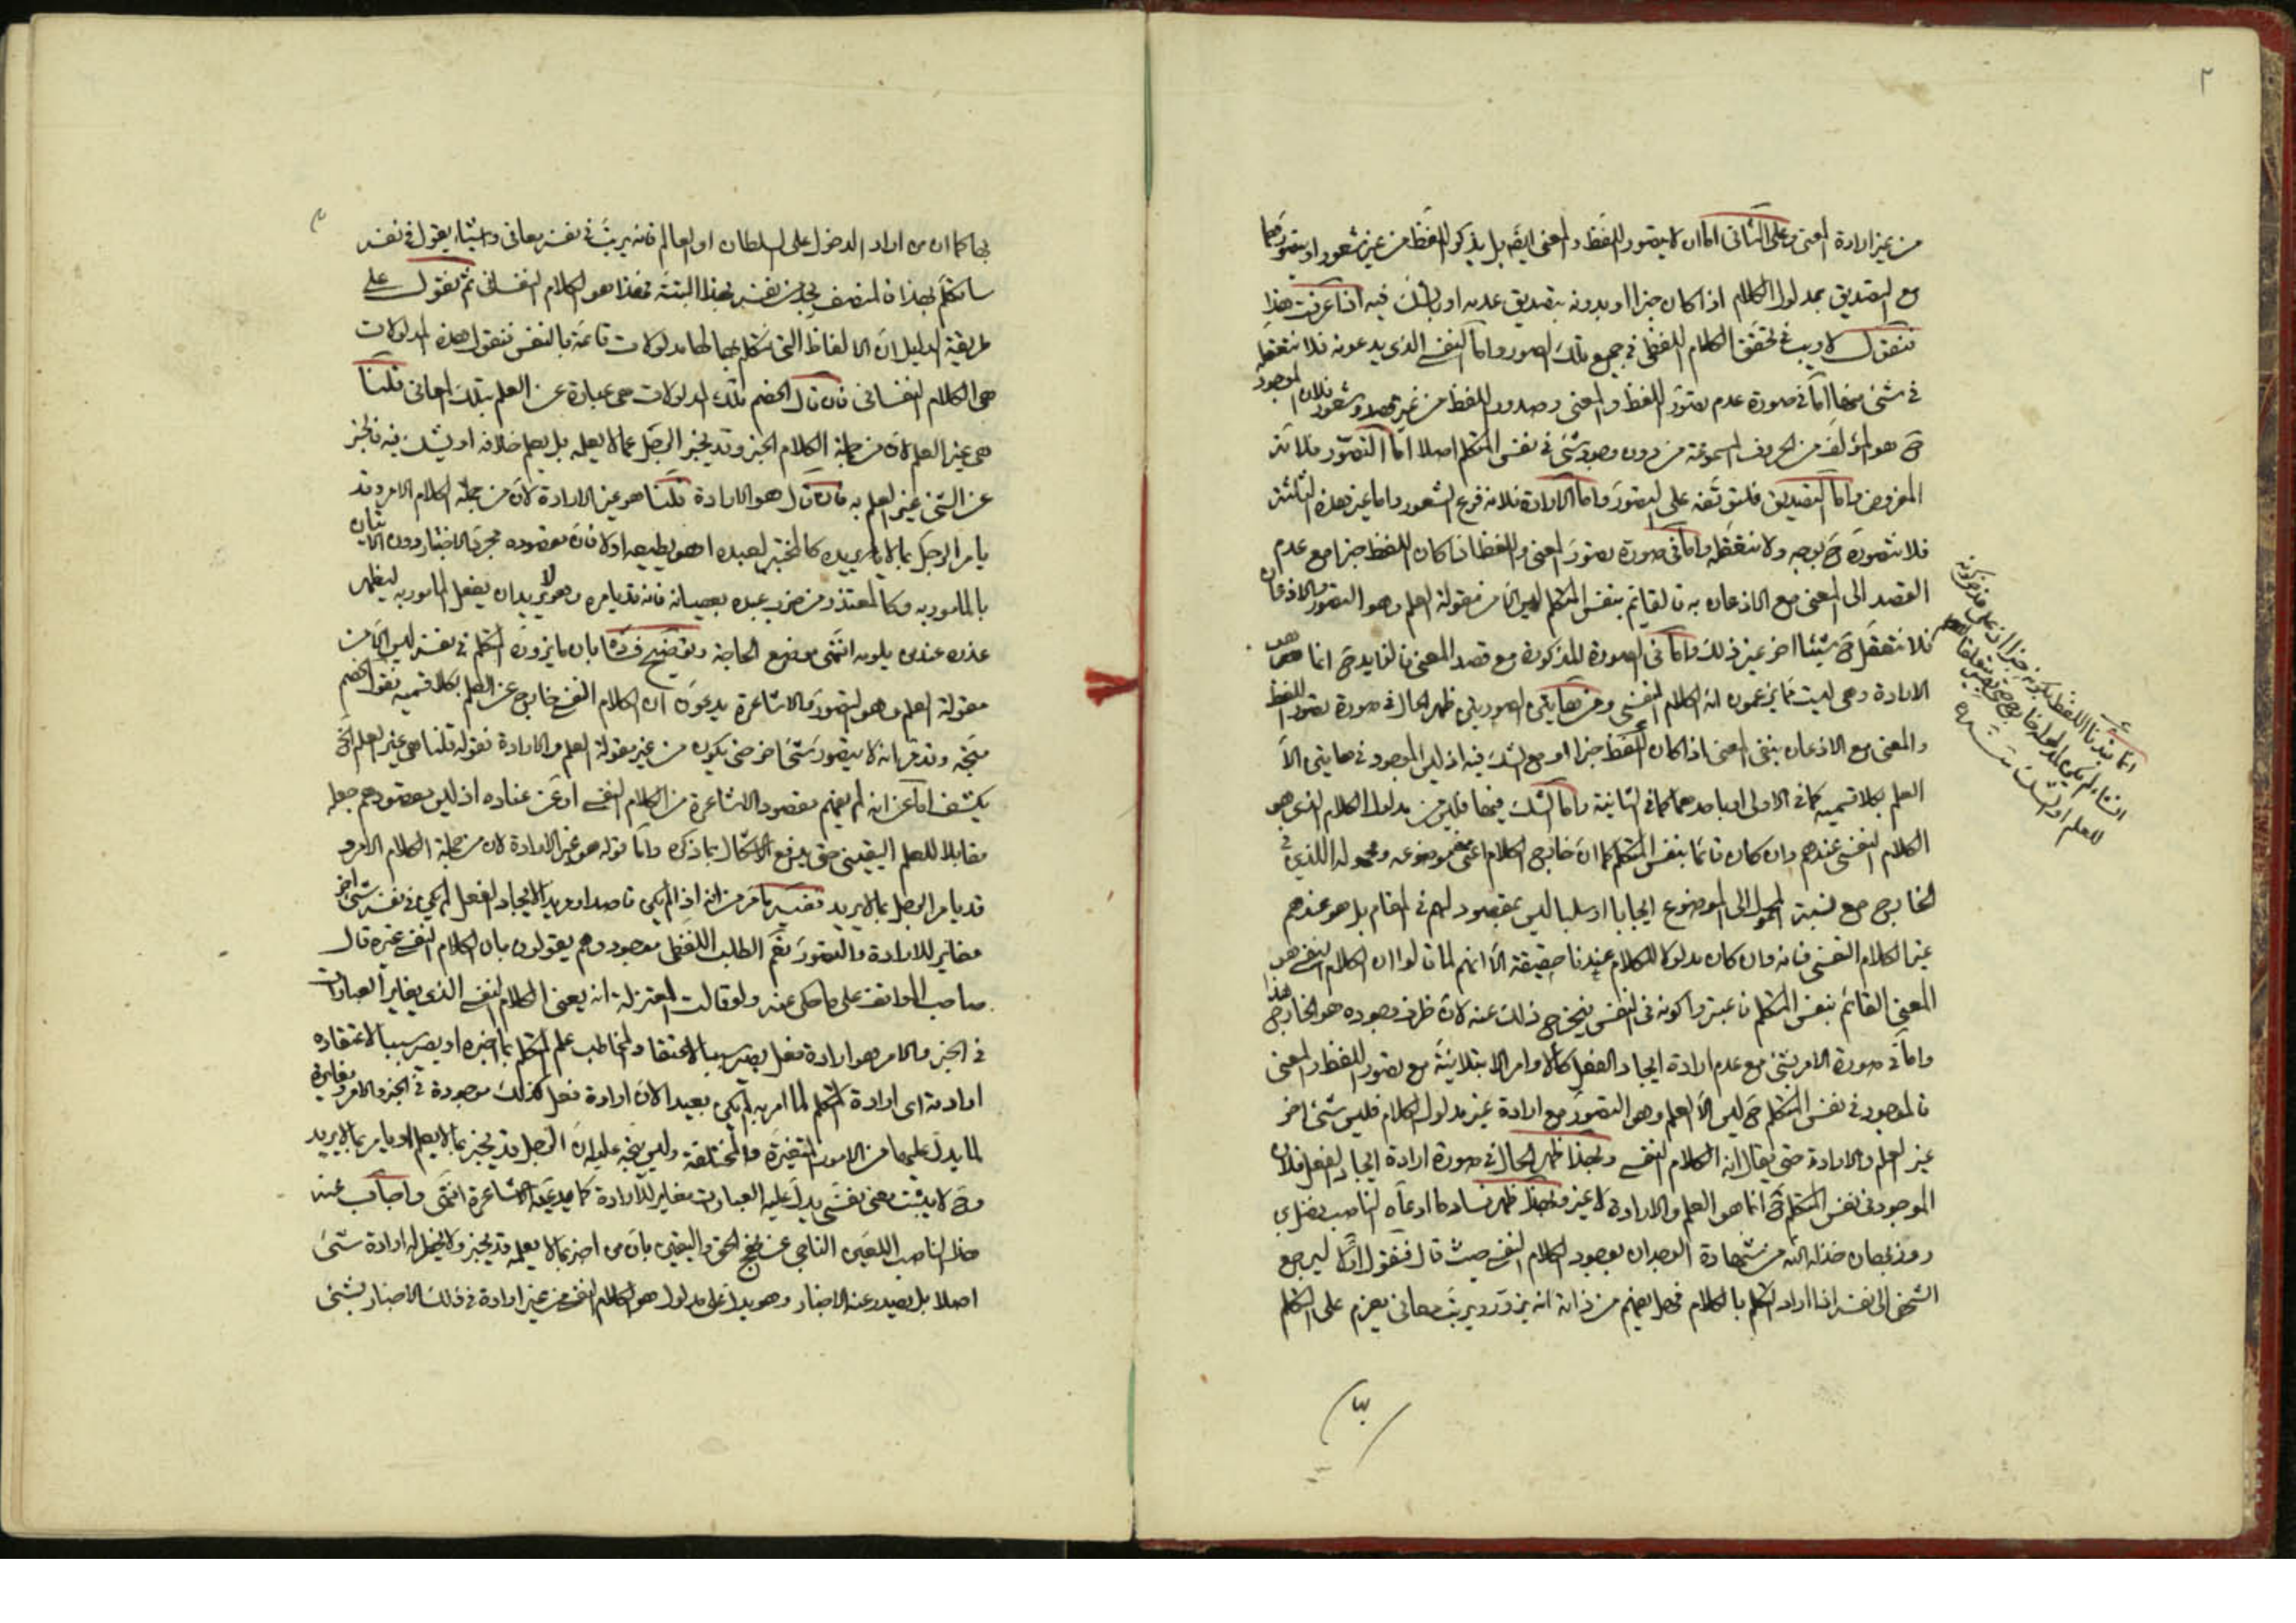 ٢
من غير ارادة المعنى وعلى الثانى اما ان لا يتصور اللفظ والمعنى ايضا بل يذكر اللفظ من غير شعور او يتصورهما
مع التصديق بمدلول الكلام اذا كان خبرا او بدونه بتصديق عدمه او بالشك فيه اذا عرفت هذا
فنقول لا ريب فى تحقق الكلام اللفظى فى جميع تلك الصور واما النفسى الذى يدعونه فلا نتعقله
فى شىء منها اما فى صورة عدم تصور اللفظ والمعنى وصدور اللفظ من غير قصد وشعور فلان الموجود
ح هو المؤلف من الحروف المسموعة من دون وجود شىء فى نفس المتكلم اصلا اما التصور فلانه
المفروض واما التصديق فلتوقفه على التصور واما الارادة فلانه فرع الشعور واما غير هذه الثلثة
فلا نتصوره ح بوجه ولا نتعقله واما فى صورة تصور المعنى واللفظ اذا كان اللفظ خبرا مع عدم
القصد الى المعنى مع الاذعان به فالقائم بنفس المتكلم ليس الا من مقولة العلم وهو التصور والاذعان
فلا نتعقل ح شيئا اخر غير ذلك واما فى الصورة المذكورة مع قصد المعنى فالزايد ح انما هو
الارادة وهى ليست مما يزعمون انه الكلام النفسى ومن هاتين الصورتين ظهر الحال فى صورة تصور اللفظ
والمعنى مع الاذعان بنفى المعنى اذا كان اللفظ خبرا او مع الشك فيه اذ ليس الموجود فى هاتين الا
العلم بكلا قسميه كما فى الاولى او باحدهما كما فى الثانية واما الشك فيهما فليس من مدلول الكلام الذى هو
الكلام النفسى عندهم وان كان قائما بنفس المتكلم كما ان خارج الكلام اعنى موضوعه ومحموله اللذين فى
الخارج مع نسبة المحمول الى الموضوع ايجابا او سلبا ليس بمقصود لهم فى المقام بل هو عندهم
غير الكلام النفسى فانه وان كان مدلولا للكلام عندنا حقيقة الا انهم لما قالوا ان الكلام النفسى هو
المعنى القائم بنفس المتكلم فاعتبروا كونه فى النفس فيخرج ذلك عنه لان ظرف وجوده هو الخارج هذا
واما فى صورة الامر بشىء مع عدم ارادة ايجاد الفعل كالاوامر الابتلائية مع تصور اللفظ والمعنى
فالموجود فى نفس المتكلم ح ليس الا العلم وهو التصور مع ارادة غير مدلول الكلام فليس شىء اخر
غير العلم والارادة حتى يقال انه الكلام النفسى وبهذا ظهر الحال فى صورة ارادة ايجاد الفعل فلان
الموجود فى نفس المتكلم ح انما هو العلم والارادة لا غير وبهذا ظهر فساد ما ادعاه الناصب فضل بن
روزبهان خذله الله من شهادة الوجدان بوجود الكلام النفسى حيث قال فنقول لك ليرجع
الشخص الى نفسه انه اذا اراد التكلم بالكلام فهل يفهم من ذاته انه يزور ويرتب معانى يعزم على التكلم
انما قيدنا اللفظ بكونه خبرا اذ على فرض كونه
انشاء لم يكن للمدلول خارج حتى يصير متعلقا
للعلم او الشك منه
بها كما ان من اراد الدخول على السلطان او العالم فانه يرتب فى نفسه معانى واشياء يقول فى نفسه
ساتكلم بهذا فالمنصف يجد من نفسه هذا البتة فهذا هو الكلام النفسانى ثم نقول على
طريقة الدليل ان الالفاظ التى نتكلم بها لها مدلولات قائمة بالنفس فنقول هذه المدلولات
هى الكلام النفسانى فان قال الخصم تلك المدلولات هى عبارة عن العلم بتلك المعانى قلنا
هى غير العلم لان من جملة الكلام الخبر وقد يخبر الرجل عما لا يعلمه بل يعلم خلافه او يشك فيه فالخبر
عن الشىء غير العلم به فان قال هو الارادة قلنا هو غير الارادة لان من جملة الكلام الامر وقد
يامر الرجل بما لا يريده كالمختبر لعبده اهو يطيعه ام لا فان مقصوده مجرد الاختبار دون الاتيان
بالمامور به وكالمعتذر من ضرب عبده بعصيانه فانه قد يامره وهو لا يريد ان يفعل المامور به ليظهر
عذره عند من يلومه انتهى موضع الحاجة وتوضيح فساده بان ما يزوره المتكلم فى نفسه ليس الا من
مقولة العلم وهو التصور والاشاعرة يدعون ان الكلام النفسى خارج عن العلم بكلا قسميه فقول الخصم
متجه وقد مر انه لا يتصور شىء اخر حتى يكون من غير مقولة العلم والارادة فقوله قلنا هى غير العلم الخ
يكشف اما عن انه لم يفهم مقصود الاشاعرة من الكلام النفسى او عن عناده اذ ليس مقصودهم جعله
مقابلا للعلم اليقينى حتى يدفع الاشكال بما ذكره واما قوله هو غير الارادة لان من جملة الكلام الامر و
قد يامر الرجل بما لا يريد ففيه ما مر من انه اذا لم يكن قاصدا ومريدا لايجاد الفعل لم يكن فى نفسه شىء اخر
مغاير للارادة والتصور نعم الطلب اللفظى موجود وهم يقولون بان الكلام النفسى غيره قال
صاحب المواقف على ما حكى عنه ولو قالت المعتزلة انه يعنى الكلام النفسى الذى يغاير العبارات
فى الخبر والامر هو ارادة فعل يصير سببا لاعتقاد المخاطب علم المتكلم بما اخبره او يصير سببا لاعتقاده
ارادته اى ارادة المتكلم لما امر به لم يكن بعيدا لان ارادة فعل كذلك موجودة فى الخبر والامر ومغايرة
لما يدل عليها من الامور المتغيرة والمختلفة وليس يتجه عليه ان الرجل قد يخبر بما لا يعلم او يامر بما لا يريد
وح لا يثبت معنى نفسى يدل عليه العبارات مغاير للارادة كما يدعيه الاشاعرة انتهى واجاب عنه
هذا الناصب اللعين الناجى عن نهج الحق واليقين بان من اخبر بما لا يعلمه قد يخبر ولا يخطر له ارادة شىء
اصلا بل يصدر عنه الاخبار وهو يدل على مدلول هو الكلام النفسى من غير ارادة فى ذلك الاخبار بشىء